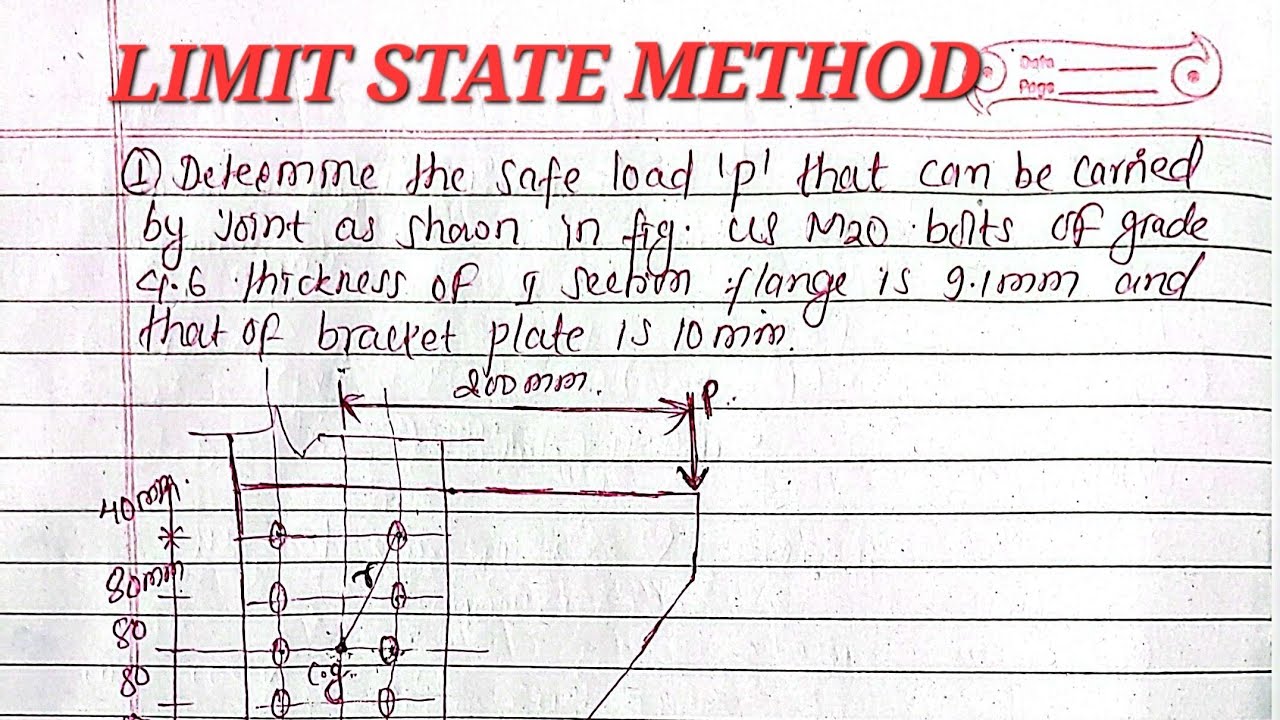 LIMIT STATE METHOD
Data
Page
① Determme the safe load 'p' that can be carried
by Joint as shown in fig. us M20 bolts of grade
4.6 thickness of I section flange is 9.1mm and
that of bracket plate is 10mm.
200mm.
P.
40mm.
80mm
r
80
C.g.
80